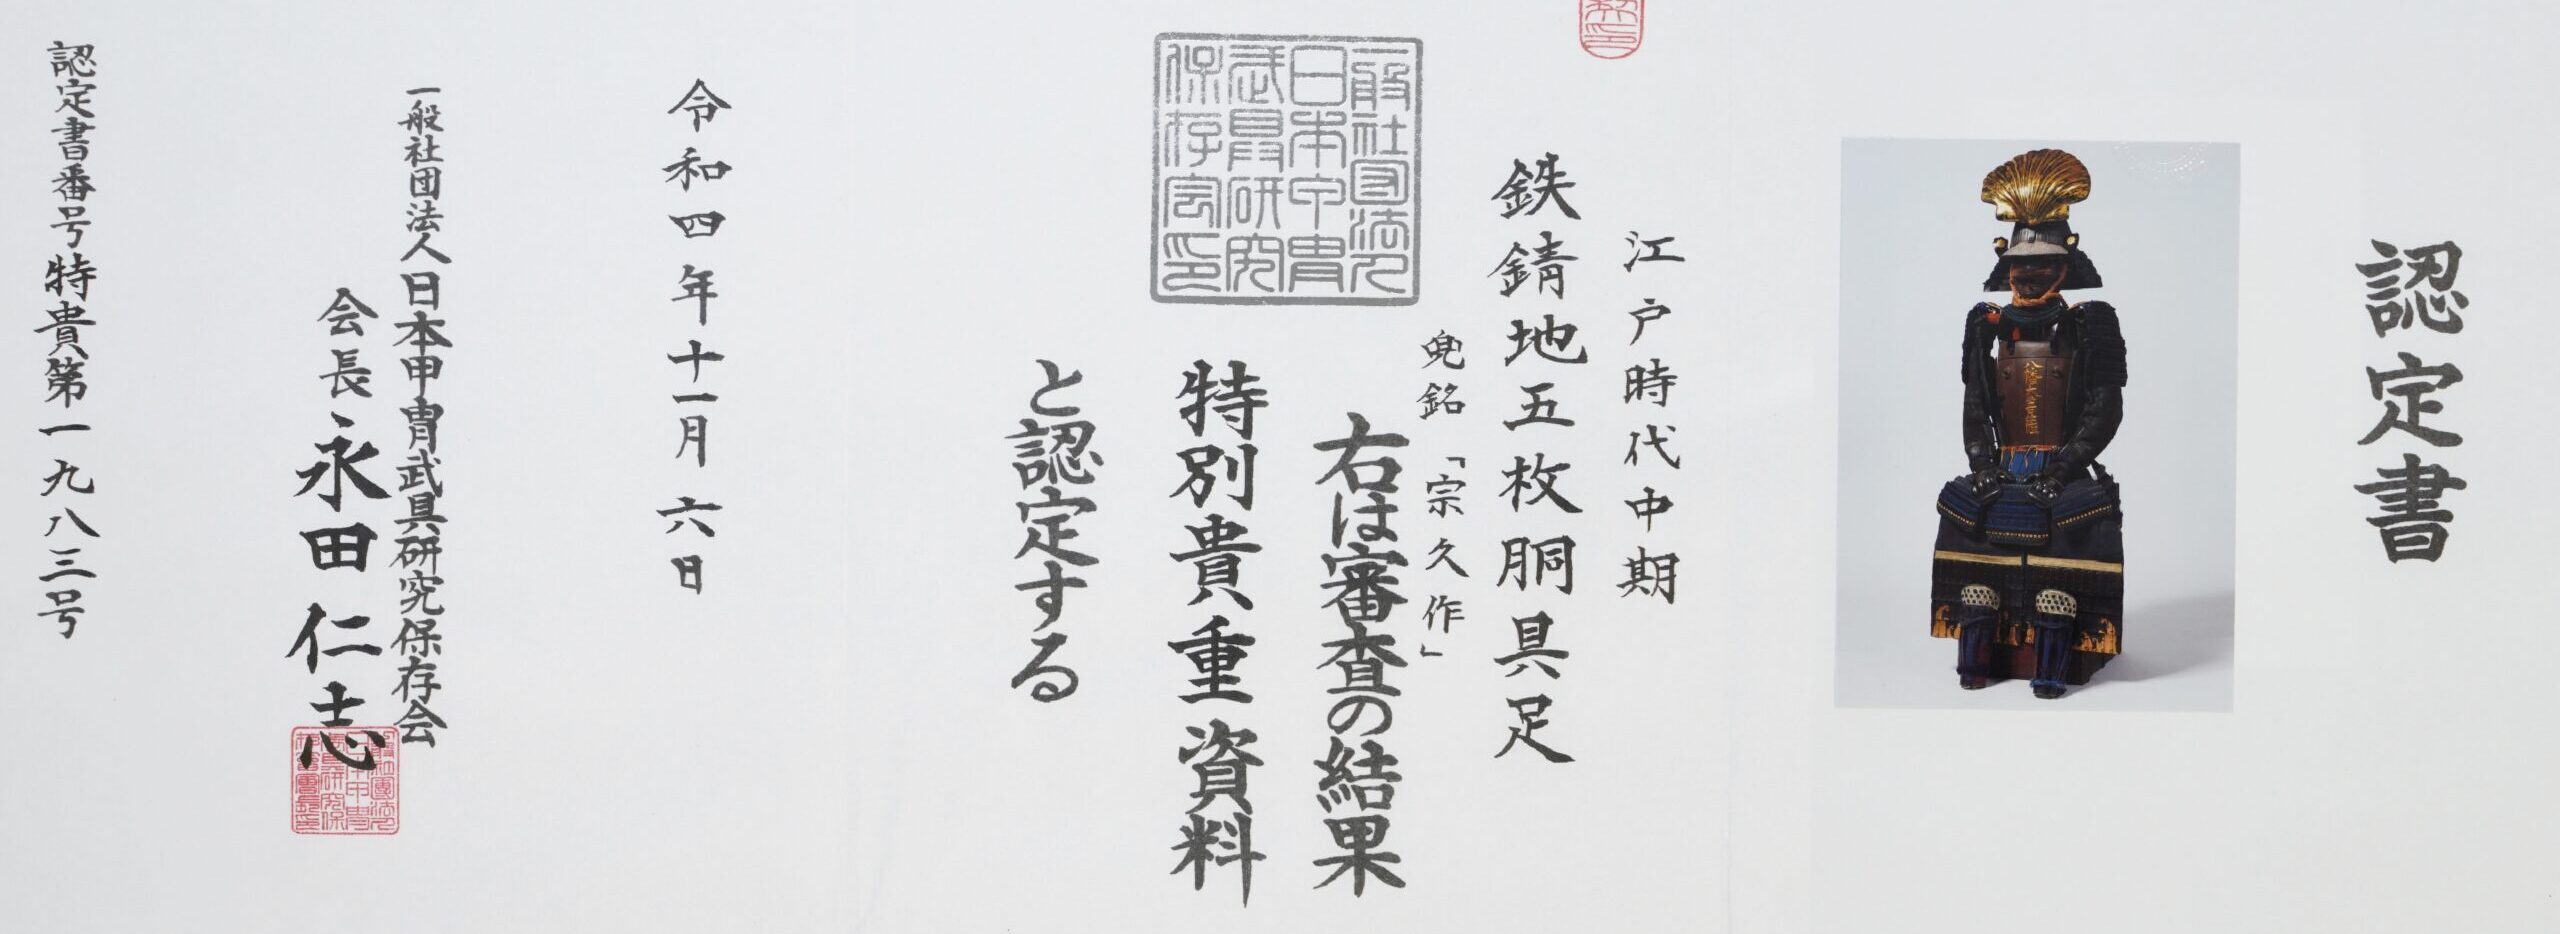 認定書
江戸時代中期
鉄錆地五枚胴具足
兜銘「宗久作」
右は審査の結果
特別貴重資料
と認定する
一般社団法人
日本甲冑
武具研究
保存会印
令和四年十一月六日
一般社団法人日本甲冑武具研究保存会
会長永田仁志
認定書番号特貴第一九八三号